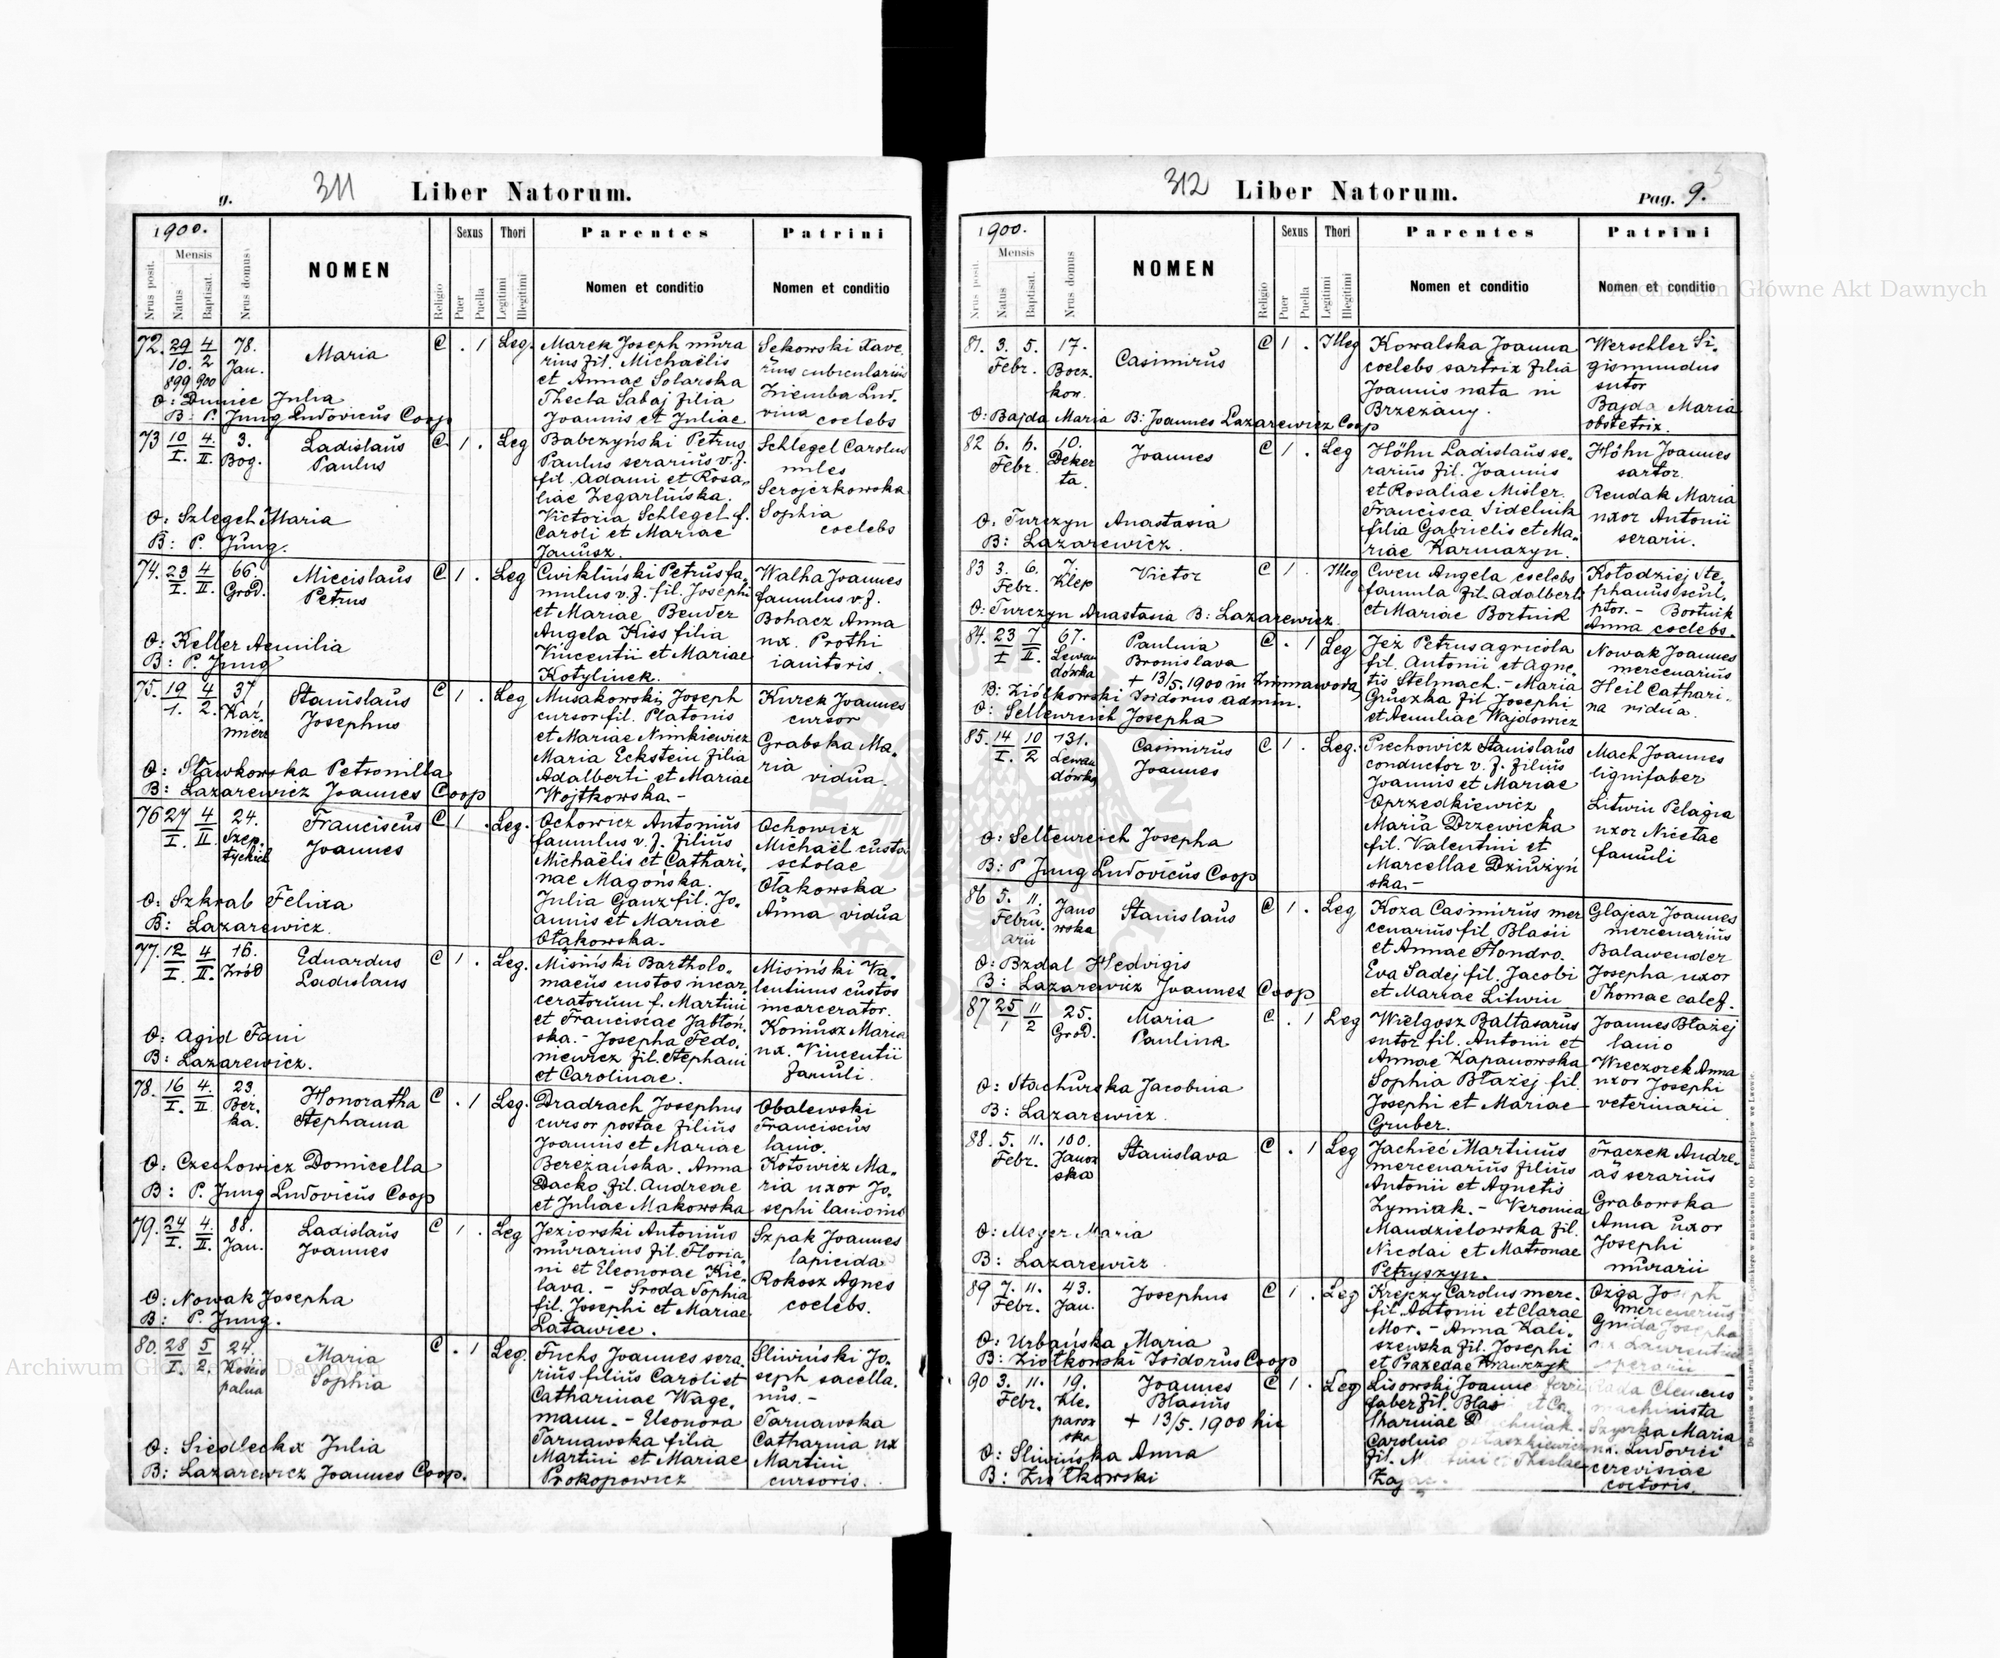 311
g.
Liber Natorum.
1900.
Nrus posit.
Mensis
Natus
Baptisat.
Nrus domus
NOMEN
Religio
Sexus
Puer
Puella
Thori
Legitimi
Illegitimi
Parentes
Nomen et conditio
Patrini
Nomen et conditio
72. 29 4 78. Maria C . 1 Leg.
10. 2 Jan.
899 900
O: Duniec Julia
B: P. Jung Ludovicus Coop
Marek Joseph mura
rius fil. Michaëlis
et Annae Solarska
Thecla Sabaj filia
Joannis et Juliae
Sekowski Xave,
rius cubicularius
Ziemba Lud,
vina coelebs
73 10 4. 3. Ladislaus C 1 . Leg
I. II. Bog. Paulus
O: Szlegel Maria
B: P. Jung.
Babczyński Petrus
Paulus serarius v. J.
fil. Adami et Rosa,
liae Zegarlińska.
Victoria Schlegel f.
Caroli et Mariae
Janusz.
Schlegel Carolus
miles
Serojczkowska
Sophia
coelebs
74. 23 4 66. Miecislaus C 1 . Leg
I. II. Grod. Petrus
O: Keller Aemilia
B: P. Jung
Cwikliński Petrus fa,
mulus v. J. fil. Josephi
et Mariae Bender
Angela Kiss filia
Vincentii et Mariae
Kotylinek.
Walha Joannes
famulus v. J.
Bohacz Anna
ux. Prothi
ianitoris.
75. 19 4 37 Stanislaus C 1 . Leg
1. 2. Kaz. Josephus
mierz
O: Stawkowska Petronilla
B: Lazarewicz Joannes Coop
Musakowski Joseph
cursor fil. Platonis
et Mariae Nimkiewicz
Maria Eckstein filia
Adalberti et Mariae
Wojtkowska.-
Kurek Joannes
cursor
Grabska Ma,
ria vidua.
76 27 4 24. Franciscus C 1 . Leg.
I. II. Szep. Joannes
tyckich
O: Szkrab Felixa
B: Lazarewicz.
Ochowicz Antonius
famulus v. J. filius
Michaelis et Cathari,
nae Magońska.
Julia Ganz fil. Jo,
annis et Mariae
Otakowska.
Ochowicz
Michaël custo
scholae
Otakowska
Anna vidua
77. 12 4 16. Eduardus C 1 . Leg.
I. II. Zród Ladislaus
O: Agid Fani
B: Lazarewicz.
Misiński Bartholo,
maeus custos incar,
ceratorum f. Martini
et Franciscae Jabłoń,
ska. - Josepha Fedo,
niewicz fil. Stephani
et Carolinae.
Misiński Va,
lentinus custos
incarcerator.
Koniusz Maria
ux. Vincentii
famuli.
78. 16 4. 23 Honoratha C . 1 Leg.
I. II Ber. Stephania
ka.
O: Czechowicz Domicella
B: P. Jung Ludovicus Coop
Dradrach Josephus
cursor postae filius
Joannis et Mariae
Bereżańska. Anna
Dacko fil. Andreae
et Juliae Makowska
Obalewski
Franciscus
lanio.
Kotowicz Ma,
ria uxor Jo,
sephi lanionis
79. 24 4. 88. Ladislaus C 1 . Leg
I. II. Jan. Joannes
O: Nowak Josepha
B: P. Jung.
Jeziorski Antonius
murarius fil. Floria,
ni et Eleonorae Kie,
lava. - Sroda Sophia
fil. Josephi et Mariae
Latawiec.
Szpak Joannes
lapicida
Rokosz Agnes
coelebs.
80. 28 5 24. Maria C . 1 Leg.
I. 2. Koscio Sophia
palna
O: Siedlecka Julia
B: Lazarewicz Joannes Coop.
Fuchs Joannes sera,
rius filius Caroli et
Catharinae Wage,
mann. - Eleonora
Tarnawska filia
Martini et Mariae
Prokopowicz
Sliwiński Jo,
seph sacella,
nus.-
Tarnawska
Catharina ux
Martini
cursoris.
312
Liber Natorum.
Pag. 9.
1900.
Nrus posit.
Mensis
Natus
Baptisat.
Nrus domus
NOMEN
Religio
Sexus
Puer
Puella
Thori
Legitimi
Illegitimi
Parentes
Nomen et conditio
Patrini
Nomen et conditio
81. 3. 5. 17. Casimirus C 1 . Illeg
Febr. Bocz.
kow.
O: Bajda Maria B: Joannes Lazarewicz Coop
Kowalska Joanna
coelebs sartrix filia
Joannis nata in
Brzezany.
Werschler Si,
gismundus
sutor
Bajda Maria
obstetrix.
82 6. 6. 10. Joannes C 1 . Leg
Febr. Deker
ta.
O: Turczyn Anastasia
B: Lazarewicz.
Höhn Ladislaus se,
rarius fil. Joannis
et Rosaliae Misler.
Francisca Sidelnik
filia Gabrielis et Ma,
riae Karmazyn.
Höhn Joannes
sartor.
Rendak Maria
uxor Antonii
serarii.
83 3. 6. 7. Victor C 1 . Illeg
Febr. Klep
O: Turczyn Anastasia B: Lazarewicz.
Cwen Angela coelebs
famula fil. Adalberti
et Mariae Bortnik
Kołodziej Ste,
phanus scul,
ptor. - Bortnik
Anna coelebs.
84. 23 7 67. Paulina C . 1 Leg
I II. Lewan Bronislava
dówka + 13/5. 1900 in Zimnawoda
B: Ziółkowski Isidorus admin.
O: Seltenreich Josepha
Jeż Petrus agricola
fil. Antonii et Agne,
tis Stelmach. - Maria
Gruszka fil Josephi
et Aemiliae Wajdowicz
Nowak Joannes
mercenarius
Heil Cathari,
na vidua.
85. 14 10 131. Casimirus C 1 . Leg.
I. 2 Lewan Joannes
dówka
O: Seltenreich Josepha
B: P Jung Ludovicus Coop
Prechowicz Stanislaus
conductor v. J. filius
Joannis et Mariae
Oprzedkiewicz
Maria Drzewicka
fil. Valentini et
Marcellae Dziużyń
ska.-
Mach Joannes
lignifaber
Litwin Pelagia
uxor Nicetae
famuli
86 5. 11. Jano Stanislaus C 1 . Leg
Febru wska
arii
O: Bzdal Hedvigis
B: Lazarewicz Joannes Coop
Koza Casimirus mer
cenarius fil. Blasii
et Annae Hondro.
Eva Sadej fil. Jacobi
et Mariae Litwin
Glajcar Joannes
mercenarius
Balawender
Josepha uxor
Thomae calef.
87 25 11 25. Maria C . 1 Leg
1 2 Grod. Paulina
O: Stachurska Jacobina
B: Lazarewicz.
Wielgosz Baltasarus
sutor fil. Antonii et
Annae Kapanowska
Sophia Błażej fil.
Josephi et Mariae
Gruber.
Joannes Błażej
lanio
Wieczorek Anna
uxor Josephi
veterinarii
88. 5. 11. 100. Stanislava C . 1 Leg
Febr. Janow
ska
O: Meyer Maria
B: Lazarewicz
Jachieć Martinus
mercenarius filius
Antonii et Agnetis
Zymiak. - Veronica
Maudzielowska fil.
Nicolai et Matronae
Petryszyn.
Fraczek Andre,
as serarius
Grabowska
Anna uxor
Josephi
murarii
89 7. 11. 43. Josephus C 1 . Leg
Febr. Jan.
O: Urbańska Maria
B: Ziółkowski Isidorus Coop
Krejczy Carolus merc.
fil. Antonii et Clarae
Mor. - Anna Kali,
szewska fil. Josephi
et Praxedae Krawczyk
Ozga Joseph
mercenarius
Gnida Josepha
ux Laurentii
operarii
90 3. 11. 19. Joannes C 1 . Leg
Febr. Kle. Blasius
parow + 13/5. 1900 hic
ska
O: Sliwińska Anna
B: Ziółkowski
Lisowski Joanne ferri
faber fil. Blas et Ca,
tharniae
Carolina
fil. et Theclae
Zając.
Clemens
machinista
Szyrka Maria
ux. Ludovici
cerevisiae
coctoris.
Archiwum Główne Akt Dawnych
Archiwum Główne Akt Dawnych